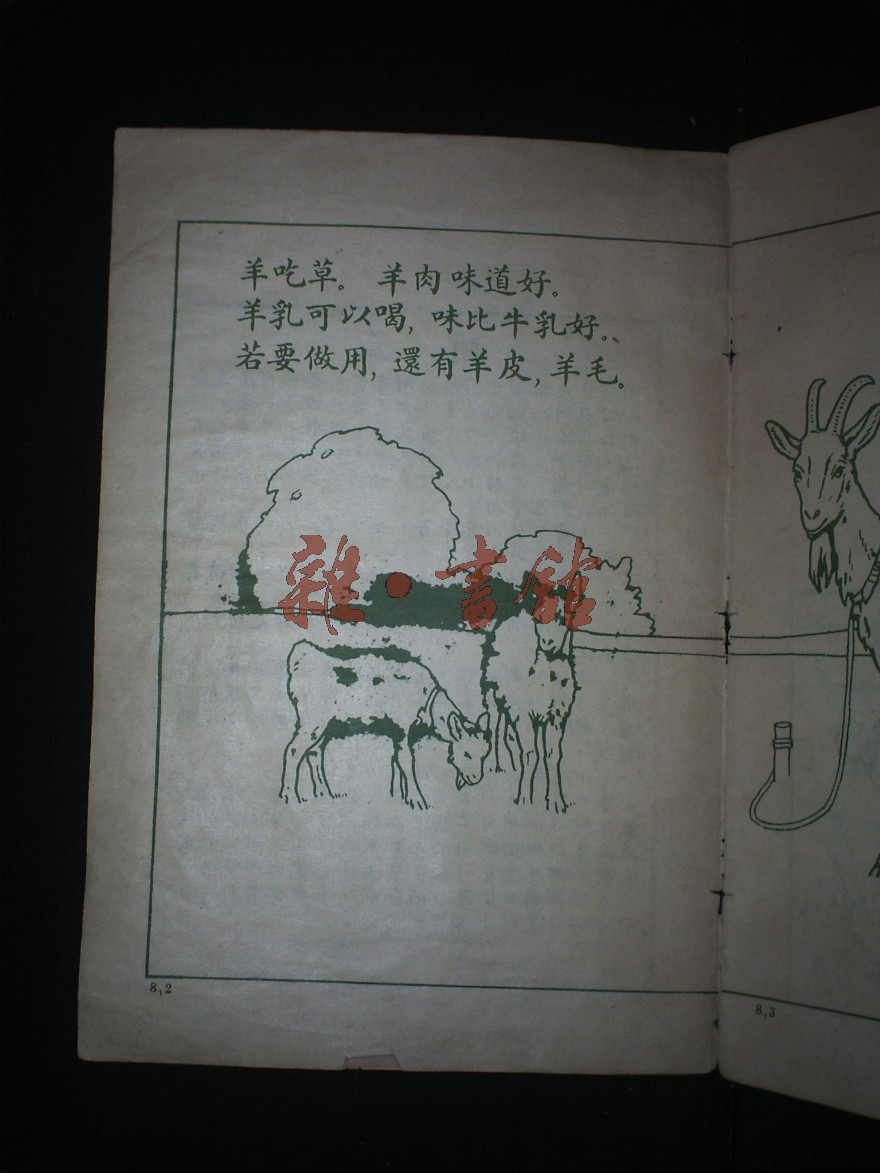 羊吃草。 羊肉味道好。
羊乳可以喝, 味比牛乳好。
若要做用, 還有羊皮, 羊毛。
雜·書館
8,2
8,3